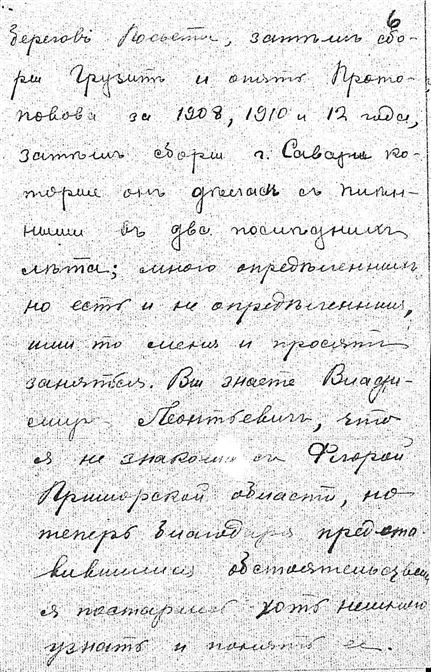 6
береговъ Посьета, затѣмъ сбо-
ры Грузитъ и опять Прото-
попова за 1908, 1910 и 12 года,
затѣмъ сборы г. Савари ко-
торые онъ дѣлалъ съ
въ два послѣднихъ
лѣта; много опредѣленныхъ
но есть и не опредѣленныя,
ими то меня и просятъ
заняться. Вы знаете Влади-
миръ Леонтьевичъ, что
я не знакома съ Флорой
Приморской области, но
теперь благодаря предста-
вившимся обстоятельствамъ
я постараюсь хоть немного
узнать и понять ее.